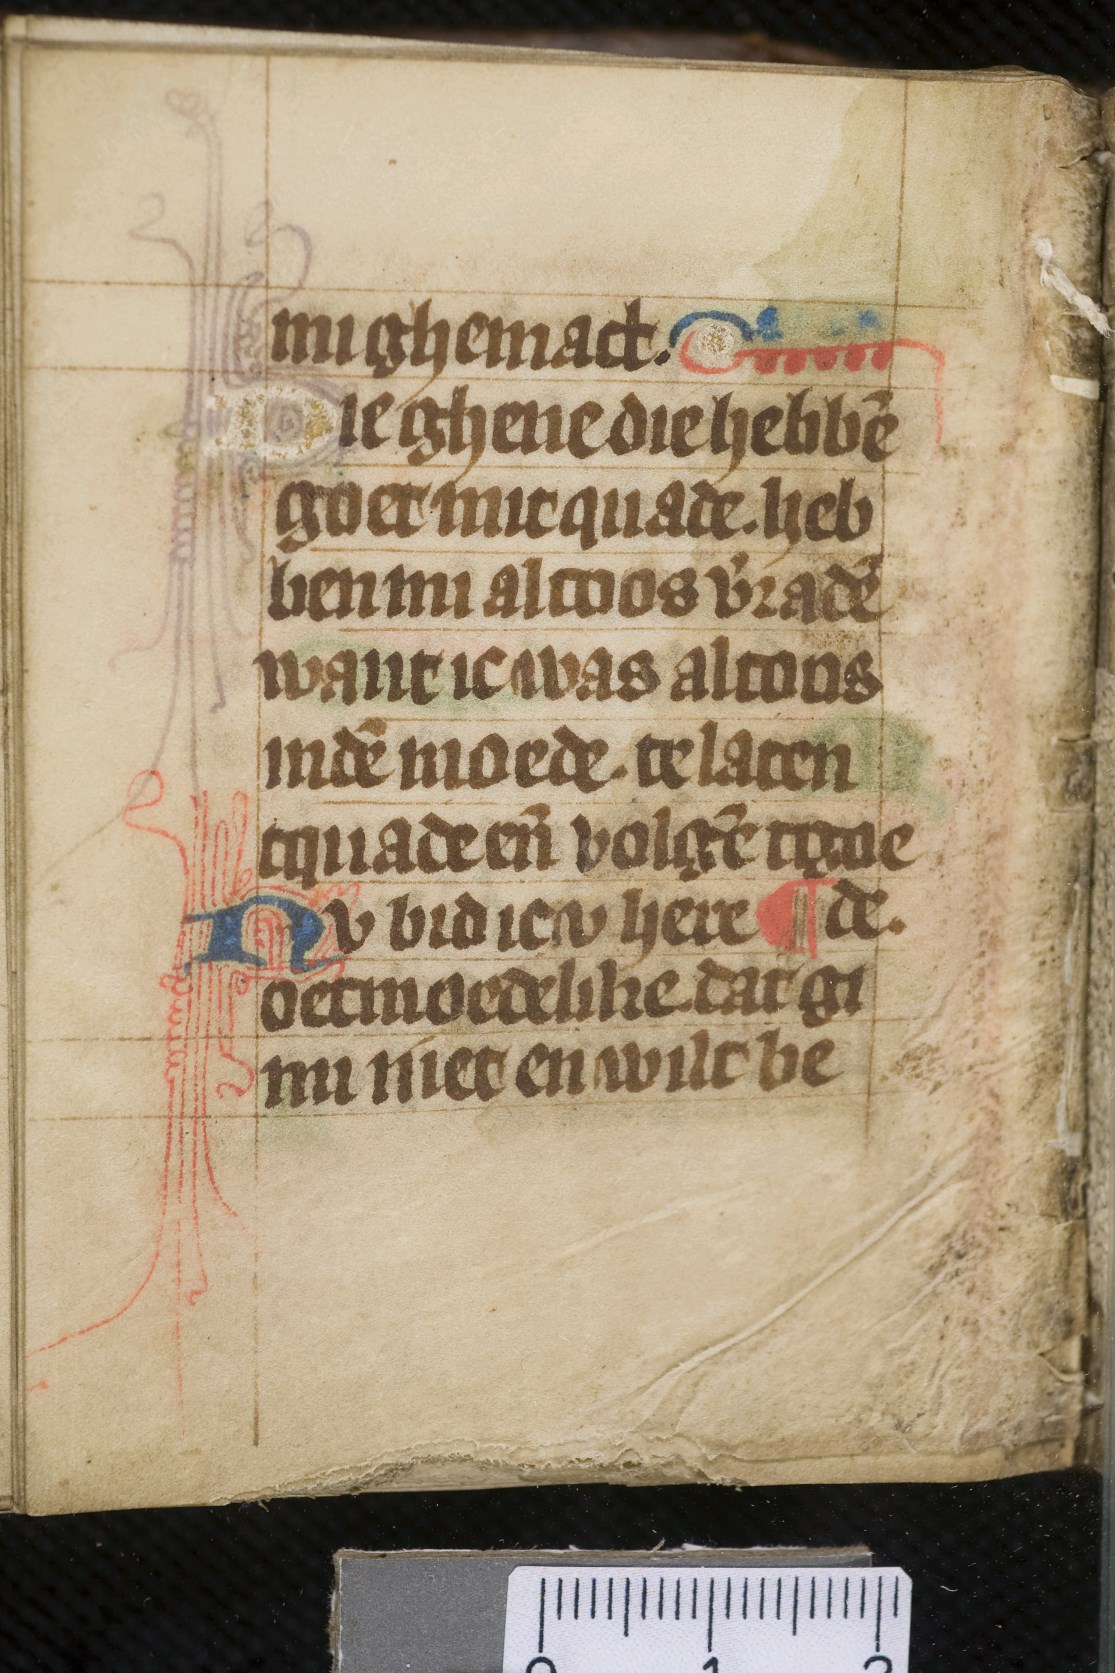 mi ghemact.
Die ghene die hebbē
goet mit quade. heb
ben mi altoos v̄radē
want ic was altoos
in dē moede. te laten
tquade eñ volgē tgoe
Nv bid ic v here ¶ de.
oetmoedelike dat gi
mi niet en wilt be
0 1 2